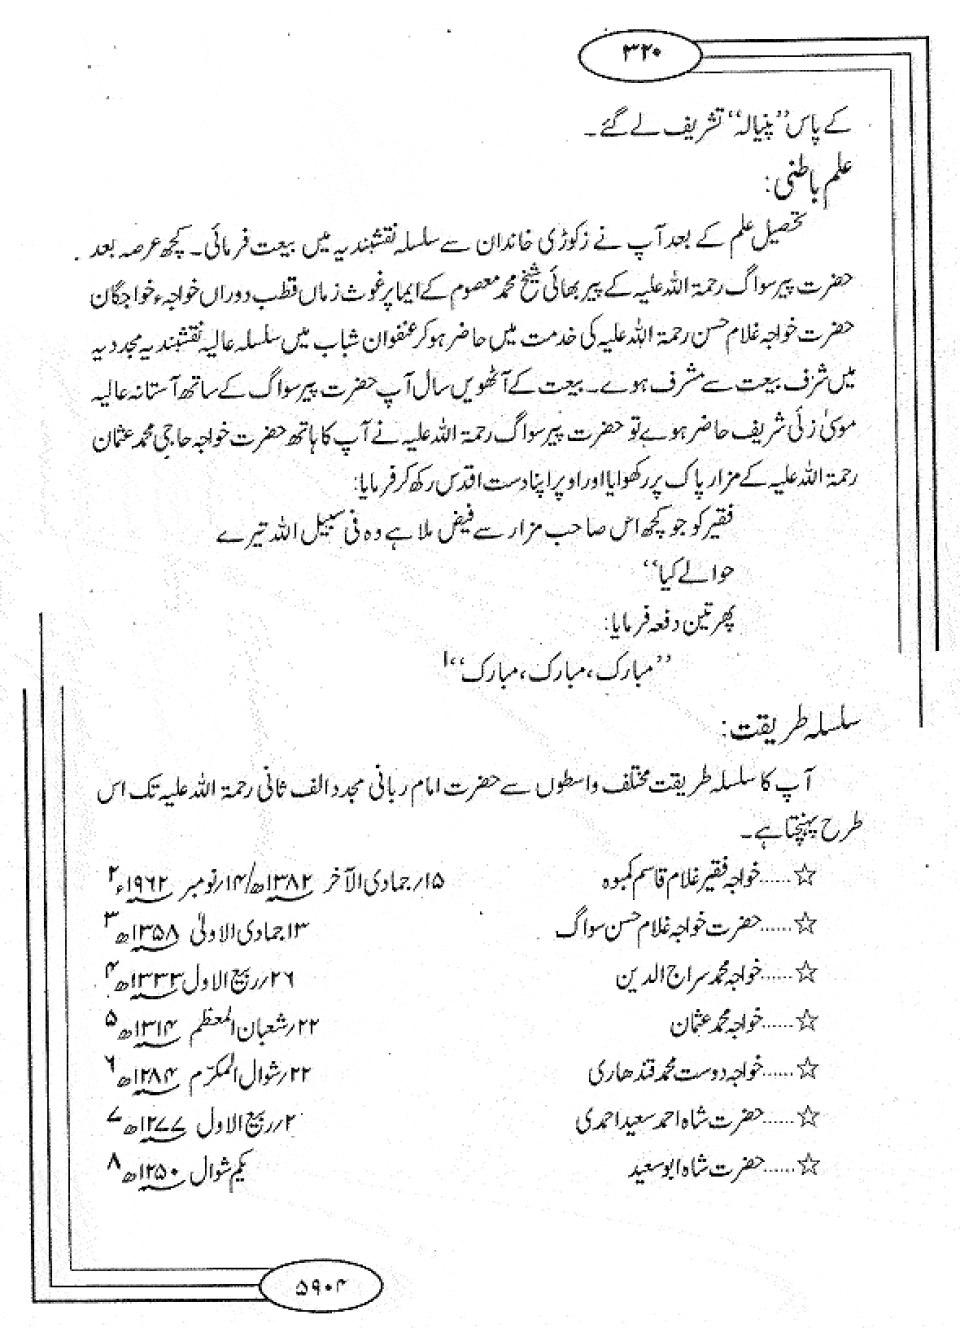 ۳۲۰
کے پاس ’’پنیالہ‘‘ تشریف لے گئے۔
علم باطنی:
تحصیل علم کے بعد آپ نے زکوڑی خاندان سے سلسلہ نقشبندیہ میں بیعت فرمائی۔ کچھ عرصہ بعد
حضرت پیر سواگ رحمۃ اللہ علیہ کے پیر بھائی شیخ محمد معصوم کے ایما پر غوث زماں قطب دوراں خواجہء خواجگان
حضرت خواجہ غلام حسن رحمۃ اللہ علیہ کی خدمت میں حاضر ہو کر عنفوان شباب میں سلسلہ عالیہ نقشبندیہ مجددیہ
میں شرف بیعت سے مشرف ہوے۔ بیعت کے آٹھویں سال آپ حضرت پیر سواگ کے ساتھ آستانہ عالیہ
موسیٰ زئی شریف حاضر ہوے تو حضرت پیر سواگ رحمۃ اللہ علیہ نے آپ کا ہاتھ حضرت خواجہ حاجی محمد عثمان
رحمۃ اللہ علیہ کے مزار پاک پر رکھوایا اور اوپر اپنا دست اقدس رکھ کر فرمایا:
فقیر کو جو کچھ اس صاحب مزار سے فیض ملا ہے وہ فی سبیل اللہ تیرے
حوالے کیا‘‘
پھر تین دفعہ فرمایا:
’’مبارک، مبارک، مبارک‘‘۱
سلسلہ طریقت:
آپ کا سلسلہ طریقت مختلف واسطوں سے حضرت امام ربانی مجدد الف ثانی رحمۃ اللہ علیہ تک اس
طرح پہنچتا ہے۔
☆......خواجہ فقیر غلام قاسم کمبوہ ۱۵/جمادی الآخر ۱۳۸۲ھ/۱۴/نومبر ۱۹۶۲ء۲
☆......حضرت خواجہ غلام حسن سواگ ۱۳ جمادی الاولیٰ ۱۳۵۸ھ۳
☆......خواجہ محمد سراج الدین ۲۶/ربیع الاول ۱۳۳۳ھ۴
☆......خواجہ محمد عثمان ۲۲/شعبان المعظم ۱۳۱۴ھ۵
☆......خواجہ دوست محمد قندھاری ۲۲/شوال المکرّم ۱۲۸۴ھ۶
☆......حضرت شاہ احمد سعید احمدی ۲/ربیع الاول ۱۲۷۷ھ۷
☆......حضرت شاہ ابو سعید یکم شوال ۱۲۵۰ھ۸
۵۹۰۴